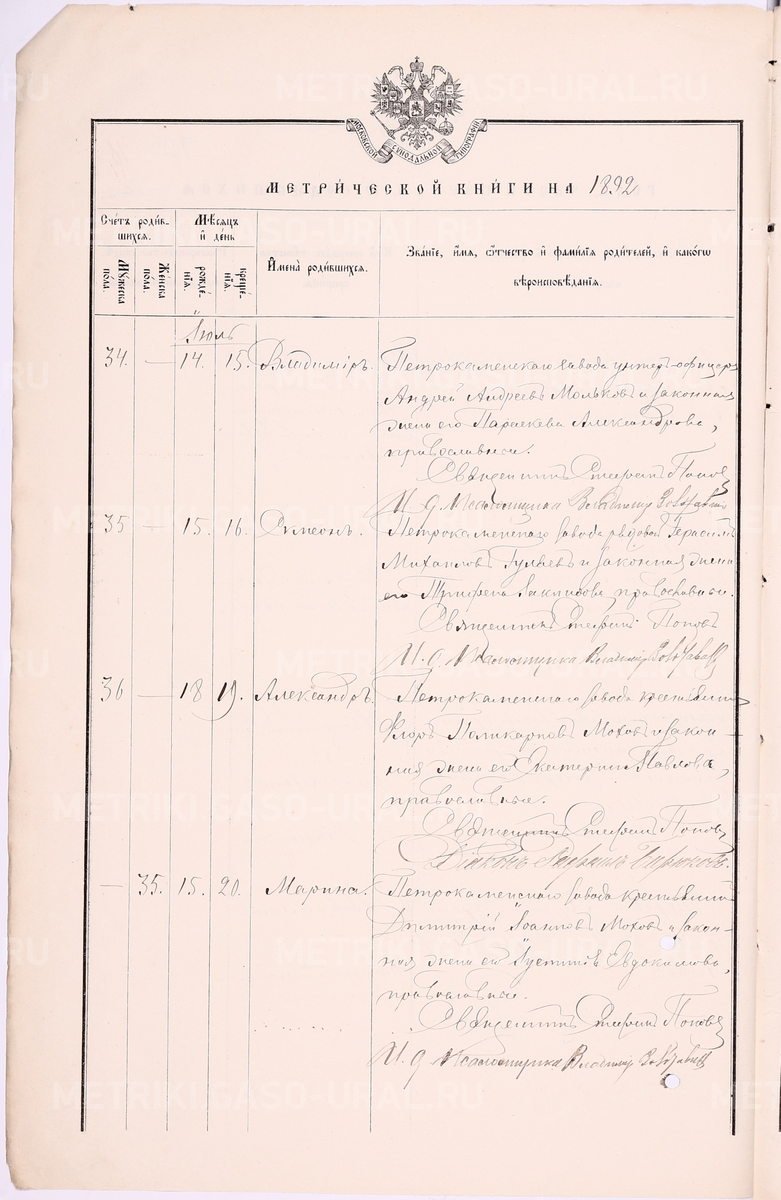 МОСКОВСКОЙ СѴНОДАЛЬНОЙ ТИПОГРАФІИ
МЕТРИ́ЧЕСКОЙ КНИ́ГИ НА 1892
Сче́тъ роди́вшихся.
Мѣ́сяцъ и҆ де́нь
И҆мена̀ роди́вшихся.
Зва́ніе, и҆́мя, ѻ҆́тчество и҆ фами́лія роди́телей, и҆ како́гѡ вѣроисповѣ́данія.
Мꙋ́жеска по́ла.
Же́нска по́ла.
рожде́нія.
креще́нія.
Іюль
34. — 14. 15. Владиміръ. Петрокаменскаго завода унтеръ-офицеръ
Андрей Андреевъ Мольковъ и законная
жена его Параскева Александрова,
православныя.
Священникъ Стефанъ Поповъ
И. д. Псаломщика Владимир
35 — 15. 16. Симеонъ. Петрокаменскаго завода рядовой Герасимъ
Михаиловъ Гуляевъ и законная жена
его православные.
Священникъ Стефанъ Поповъ
И. д. Псаломщика Владимир
36 — 18 19. Александръ. Петрокаменскаго завода крестьянинъ
Флоръ Поликарповъ Моховъ и закон-
ная жена его Екатерина Павлова,
православные.
Священникъ Стефанъ Поповъ
Діаконъ
— 35. 15. 20. Марина. Петрокаменскаго завода крестьянинъ
Димитрій Іоанновъ Моховъ и закон-
ная жена его Іустина Евдокимова,
православные.
Священникъ Стефанъ Поповъ
И. д. Псаломщика Владимир
METRIKI.GASO-URAL.RU